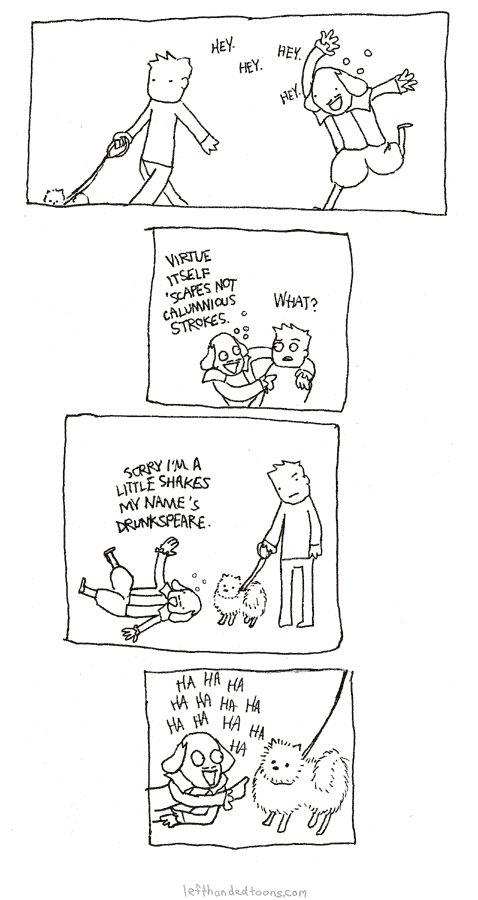 HEY.
HEY.
HEY.
HEY.
VIRTUE
ITSELF
'SCAPES NOT
CALUMNIOUS
STROKES.
WHAT?
SORRY I'M A
LITTLE SHAKES
MY NAME'S
DRUNKSPEARE.
HA HA HA
HA HA HA HA
HA HA HA HA
HA
lefthandedtoons.com